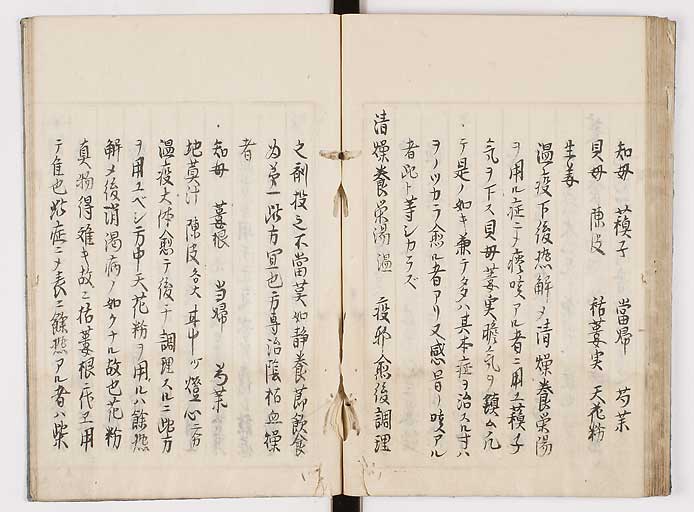 知母　蘓子　當歸　芍茉
貝母　陳皮　栝蔞実　天花粉
生姜
温疫下後熱解メ清燥養栄湯
ヲ用ル症ニメ痰咳アル者ニ用ユ蘓子
気ヲ下ス貝母蔞実胆気ヲ鎮ム凡
テ是ノ如キ兼テタヽハ其本症ヲ治スル寸ハ
ヲノツカラ愈ル者アリ又感冒ノ咳アル
者此ト等シカラズ
清燥養栄湯温　疫邪愈後調理
之剤投之不當莫如静養節飲食
為第一此方宜也方専治陰枯血燥
者
知母　蔞根　当歸　芍茉
地黄汁　陳皮各大　甘中少　燈心二分
温疫大体愈テ後チ調理スルニ此方
ヲ用ユベシ方中天花粉ヲ用ルハ餘熱
解メ後消渇病ノ如クナル故也花粉
真物得難キ故ニ栝蔞根ニ代エ用
テ佳也此症ニメ表ニ餘熱アル者ハ柴